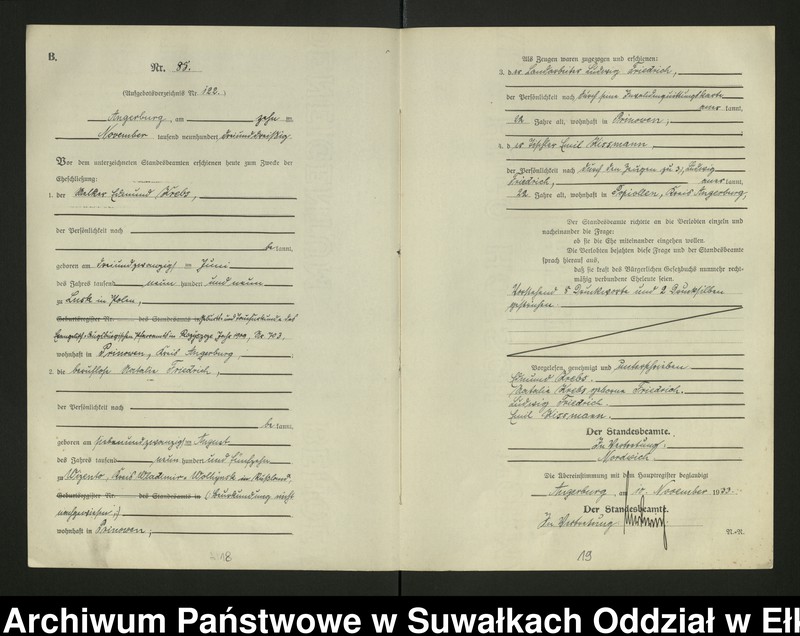 B.
Nr. 85.
(Aufgebotsverzeichnis Nr 122.)
Angerburg, am zehn ten
November tausend neunhundert dreiunddreißig
Vor dem unterzeichneten Standesbeamten erschienen heute zum Zwecke der
Eheschließung:
1. der Melker Edmund Krebs,
der Persönlichkeit nach
be kannt,
geboren am dreiundzwanzig ten Juni
des Jahres tausend neun hundert und neun
zu Luzk in Polen,
Geburtsregister Nr. des Standesamts in
Pfarramts in Jahr Nr. 703.
wohnhaft in Primowen, Kreis Angerburg,
2. die berufslose Natalie Friedrich,
der Persönlichkeit nach
be kannt,
geboren am siebenundzwanzig ten August
des Jahres tausend neun hundert und fünfzehn
zu Kreis Wladimir in Rußland,
Geburtsregister Nr. des Standesamts in (Beurkundung nicht
nachgewiesen.)
wohnhaft in Primowen;
18
Als Zeugen waren zugezogen und erschienen:
3. d er Landarbeiter Ludwig Friedrich,
der Persönlichkeit nach durch seine Invalidenquittungskarte
aner kannt,
22 Jahre alt, wohnhaft in Primowen;
4. d er Emil Kissmann,
der Persönlichkeit nach durch den Zeugen zu 3, Ludwig
Friedrich, aner kannt,
22 Jahre alt, wohnhaft in Kreis Angerburg;
Der Standesbeamte richtete an die Verlobten einzeln und
nacheinander die Frage:
ob sie die Ehe miteinander eingehen wollen.
Die Verlobten bejahten diese Frage und der Standesbeamte
sprach hierauf aus,
daß sie kraft des Bürgerlichen Gesetzbuchs nunmehr recht-
mäßig verbundene Eheleute seien.
Vorstehend 5 Druckworte und 2 Drucksilben
gestrichen.
Vorgelesen, genehmigt und unterschrieben
Edmund Krebs.
Natalie Krebs geborene Friedrich.
Ludwig Friedrich.
Emil Kissmann.
Der Standesbeamte.
In Vertretung:
Die Übereinstimmung mit dem Hauptregister beglaubigt
Angerburg, am 10. November 1933.
Der Standesbeamte.
In Vertretung
N.-R.
19
Archiwum Państwowe w Suwałkach Oddział w Ełk